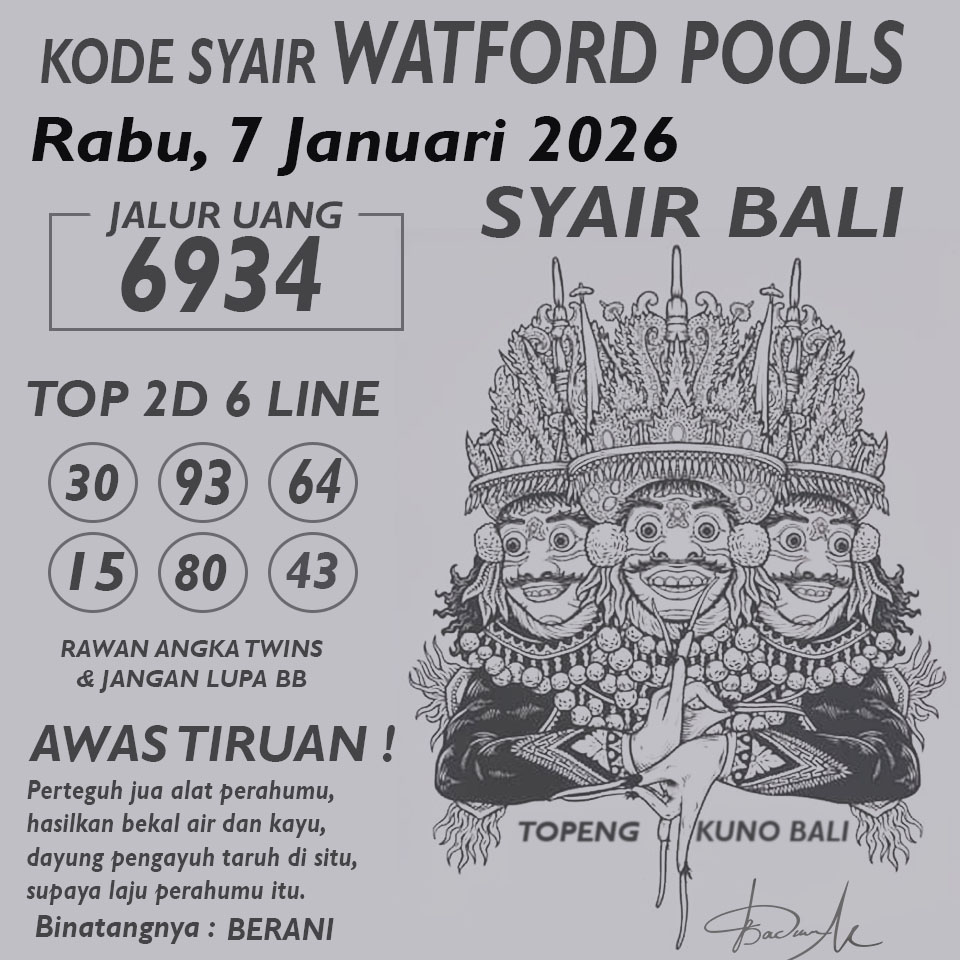 KODE SYAIR WATFORD POOLS
Rabu, 7 Januari 2026
SYAIR BALI
JALUR UANG
6934
TOP 2D 6 LINE
30 93 64
15 80 43
RAWAN ANGKA TWINS
& JANGAN LUPA BB
AWAS TIRUAN !
Perteguh jua alat perahumu,
hasilkan bekal air dan kayu,
dayung pengayuh taruh di situ,
supaya laju perahumu itu.
Binatangnya : BERANI
TOPENG KUNO BALI